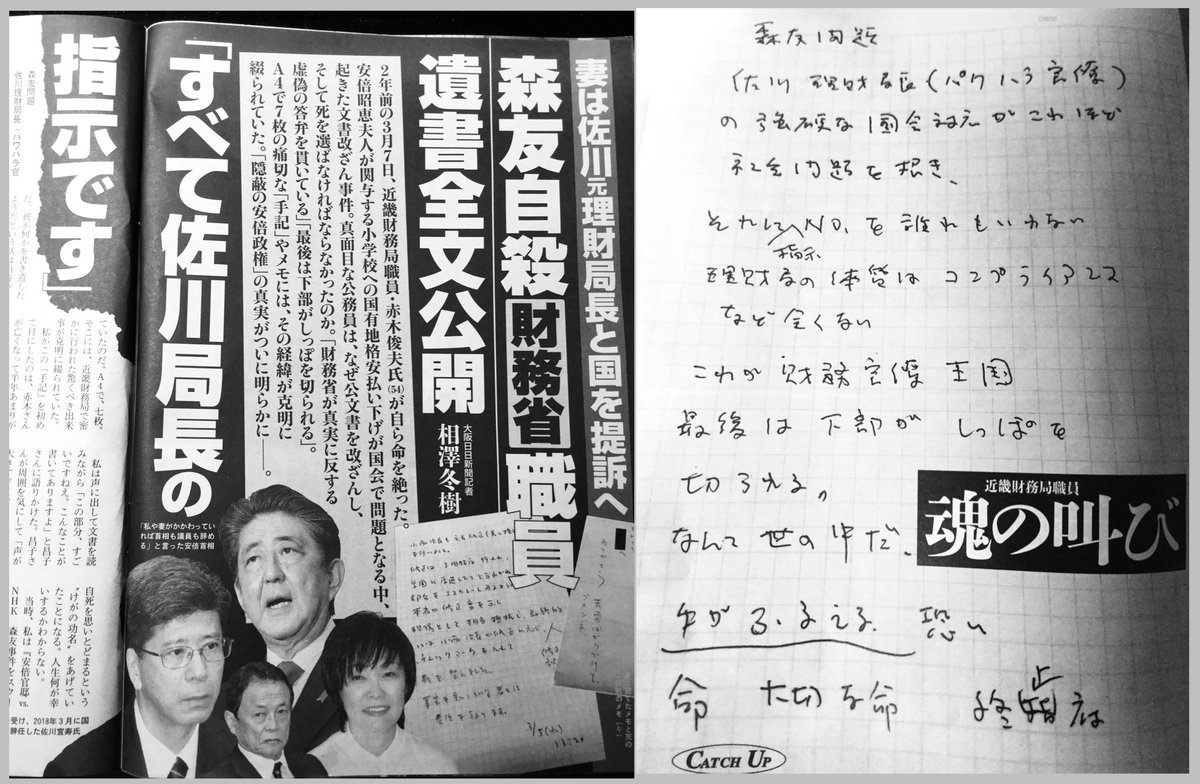 妻は佐川元理財局長と国を提訴へ
森友自殺[財務省]職員
遺書全文公開
大阪日日新聞記者
相澤冬樹
2年前の3月7日、近畿財務局職員・赤木俊夫氏(54)が自ら命を絶った。
安倍昭恵夫人が関与する小学校への国有地格安払い下げが国会で問題となる中、
起きた文書改ざん事件。真面目な公務員は、なぜ公文書を改ざんし、
そして死を選ばなければならなかったのか。「財務省が真実に反する
虚偽の答弁を貫いている」「最後は下部がしっぽを切られる」。
A4で7枚の痛切な「手記」やメモには、その経緯が克明に
綴られていた。「隠蔽の安倍政権」の真実がついに明らかに――。
「すべて佐川局長の
指示です」
「私や妻がかかわってい
れば首相も議員も辞め
る」と言った安倍首相
森友問題
ていたのだ。A4で、七枚。
そこには、近畿財務局で密
かに行われた驚くべき出来
事が克明に綴られていた。
私がこの「手記」を初め
て目にしたのは、赤木さん
が亡くなって半年あまりが
私は声に出して文書を読
みながら「この部分、すご
いですねえ。こんなことが
書いてありますよ」と昌子
さんに語りかけた。昌子さ
んが周囲を気にして「声が
自死を思いとどまるという
“けがの功名”をあげてい
たことになる。人生何が幸
いするかわからない。
当時、私は『安倍官邸vs.
NHK 森友事件をスク
受け、2018年3月に国
辞任した佐川宣寿氏
森友問題
佐川理財局長(パワハラ官僚)
の強硬な国会対応がこれほど
社会問題を招き、
それにNO.を誰れもいわない
指示
理財局の体質はコンプライアンス
など全くない
これが財務官僚王国
最後は下部がしっぽを
切られる。
なんて世の中だ、
手がふるえる 恐い
命 大切な命 終止府
近畿財務局職員
魂の叫び
CATCH UP